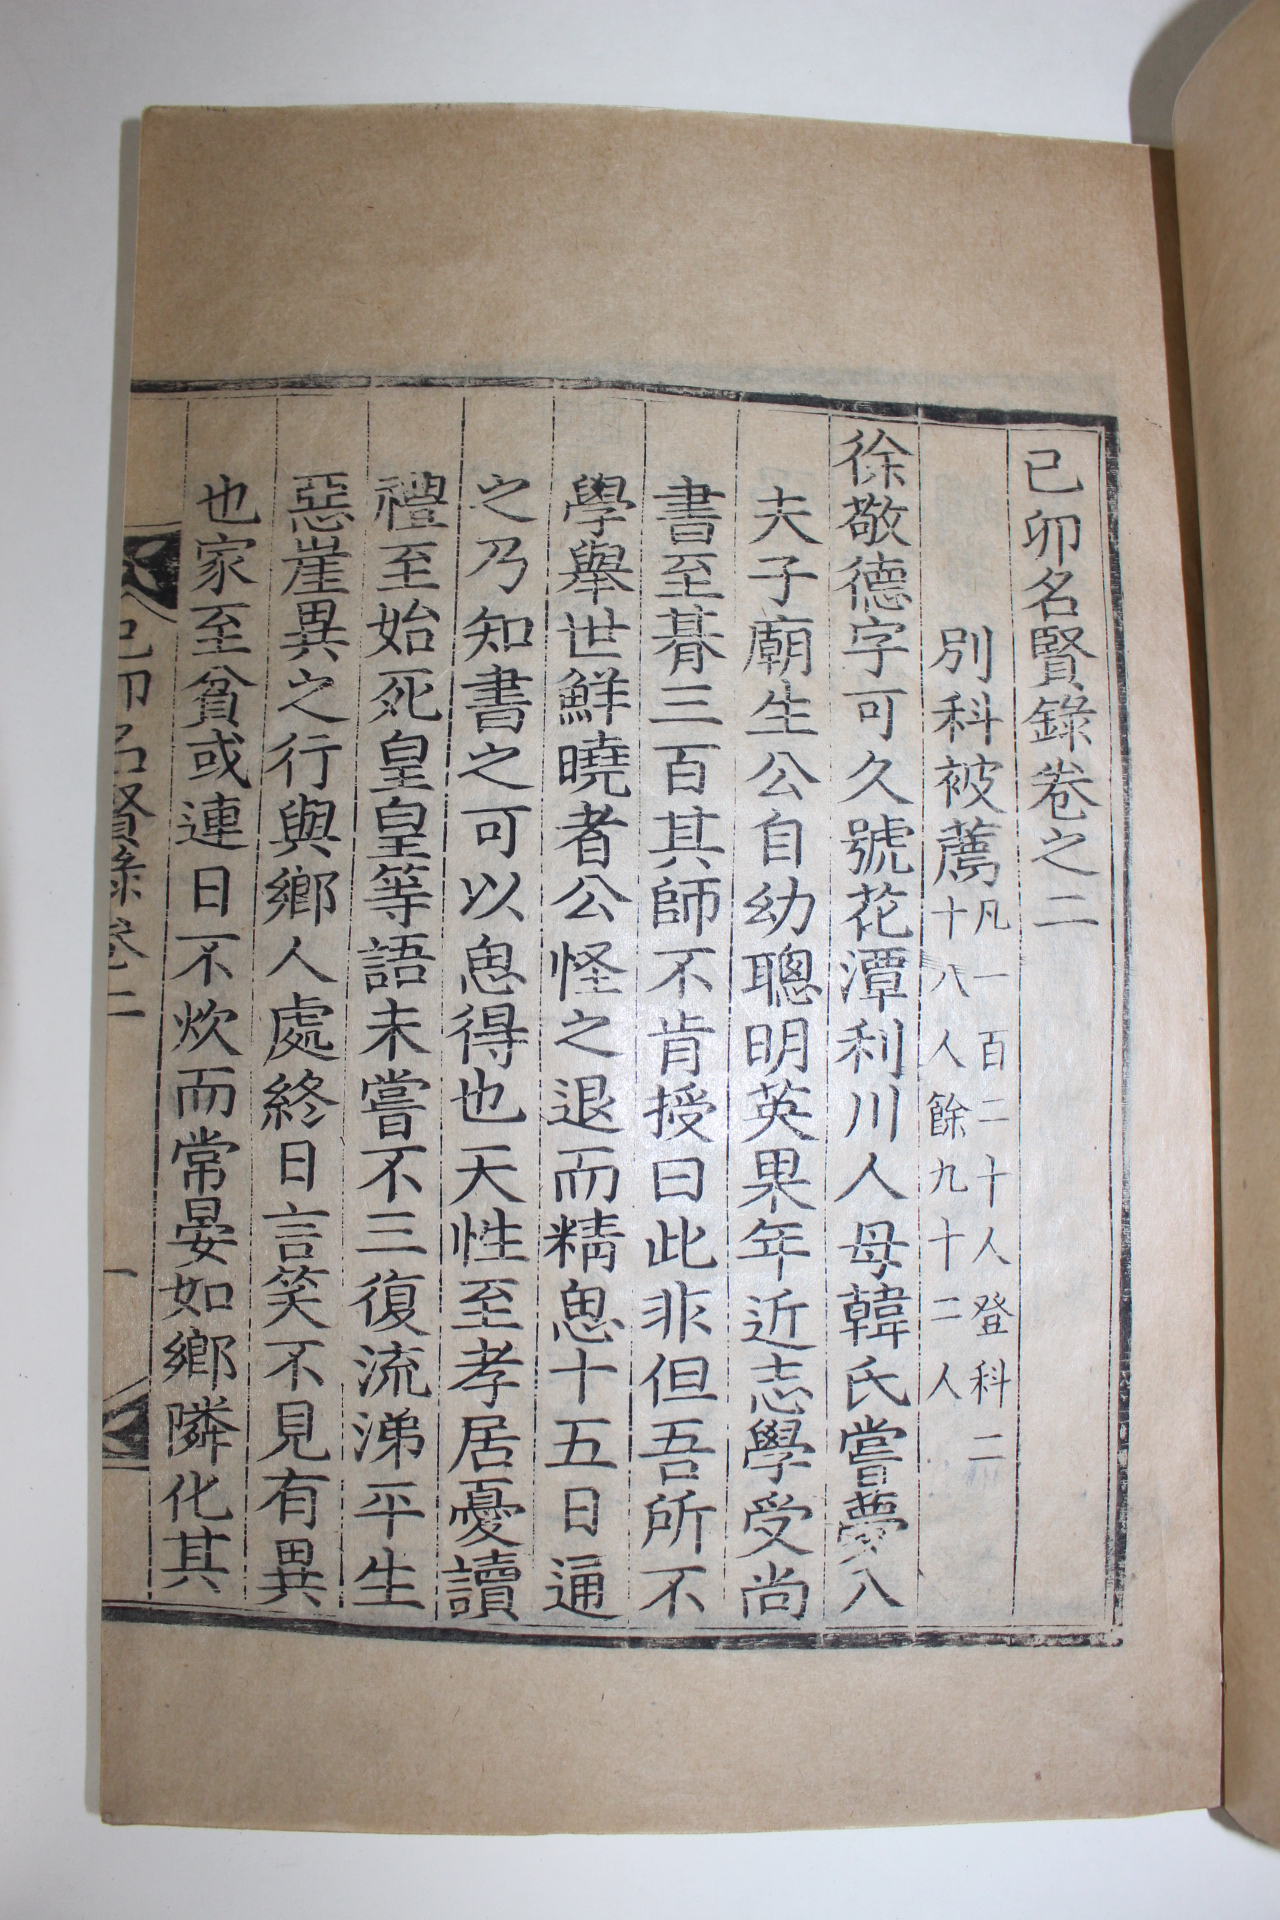 己卯名賢錄卷之二
別科被薦凡一百二十人登科二
十八人餘九十二人
徐敬德字可久號花潭利川人母韓氏嘗夢入
夫子廟生公自幼聰明英果年近志學受尚
書至朞三百其師不肯授曰此非但吾所不
學舉世鮮曉者公怪之退而精思十五日通
之乃知書之可以思得也天性至孝居憂讀
禮至始死皇皇等語未嘗不三復流涕平生
惡崖異之行與鄉人處終日言笑不見有異
也家至貧或連日不炊而常晏如鄉隣化其
己卯名賢錄卷二
一